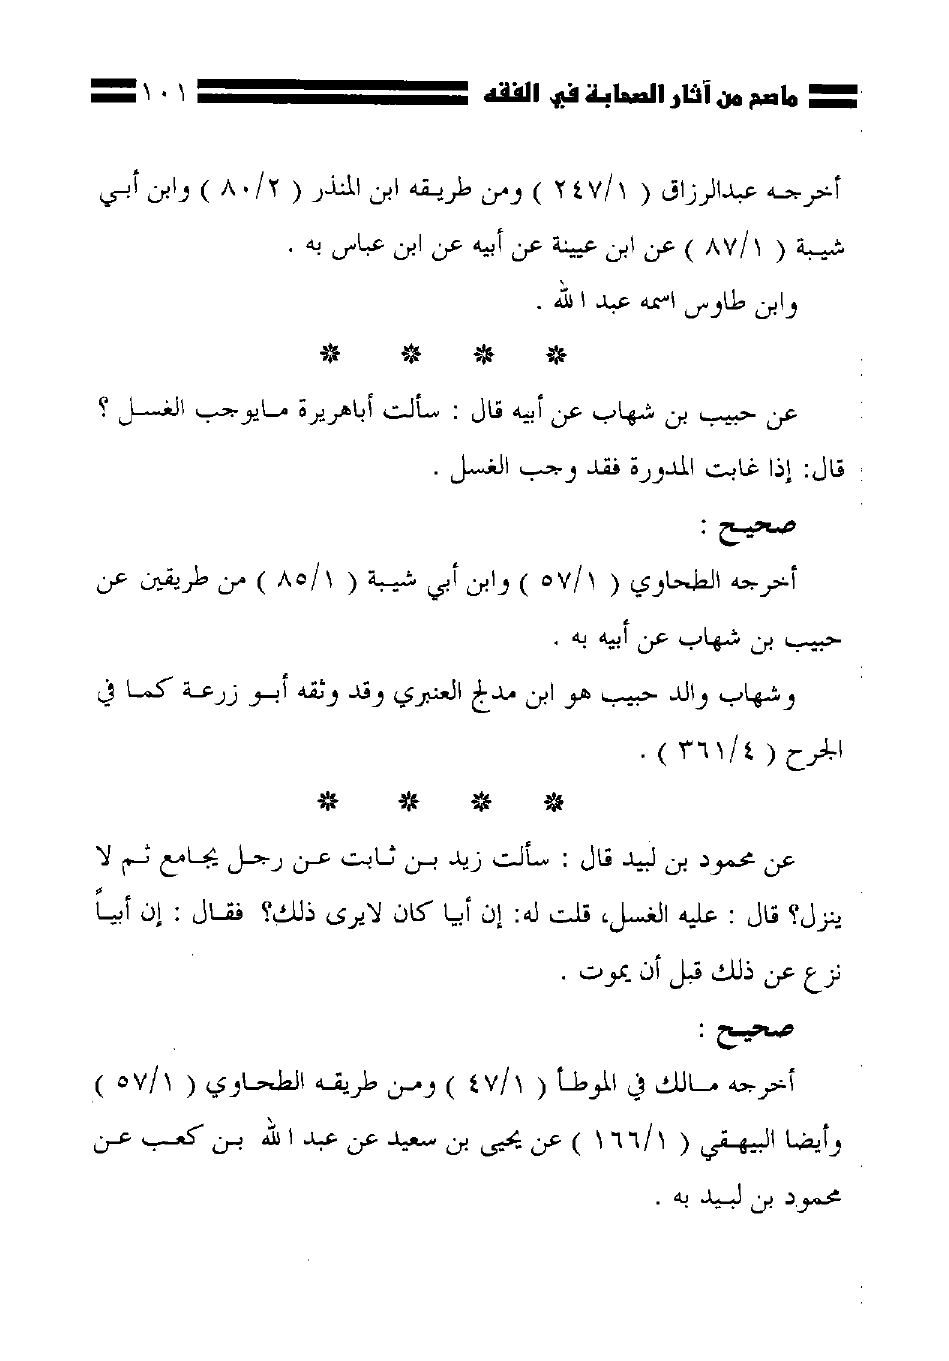 ماصح من آثار الصحابة في الفقه ١٠١
أخرجه عبدالرزاق ( ٢٤٧/١ ) ومن طريقه ابن المنذر ( ٨٠/٢ ) وابن أبي
شيبة ( ٨٧/١ ) عن ابن عيينة عن أبيه عن ابن عباس به .
وابن طاوس اسمه عبد الله .
* * * *
عن حبيب بن شهاب عن أبيه قال : سألت أباهريرة مايوجب الغسل ؟
قال: إذا غابت المدورة فقد وجب الغسل .
صحيح :
أخرجه الطحاوي ( ٥٧/١ ) وابن أبي شيبة ( ٨٥/١ ) من طريقين عن
حبيب بن شهاب عن أبيه به .
وشهاب والد حبيب هو ابن مدلج العنبري وقد وثقه أبو زرعة كما في
الجرح ( ٣٦١/٤ ) .
* * * *
عن محمود بن لبيد قال : سألت زيد بن ثابت عن رجل يجامع ثم لا
ينزل؟ قال : عليه الغسل، قلت له: إن أبيا كان لايرى ذلك؟ فقال : إن أبياً
نزع عن ذلك قبل أن يموت .
صحيح :
أخرجه مالك في الموطأ ( ٤٧/١ ) ومن طريقه الطحاوي ( ٥٧/١ )
وأيضا البيهقي ( ١٦٦/١ ) عن يحيى بن سعيد عن عبد الله بن كعب عن
محمود بن لبيد به .